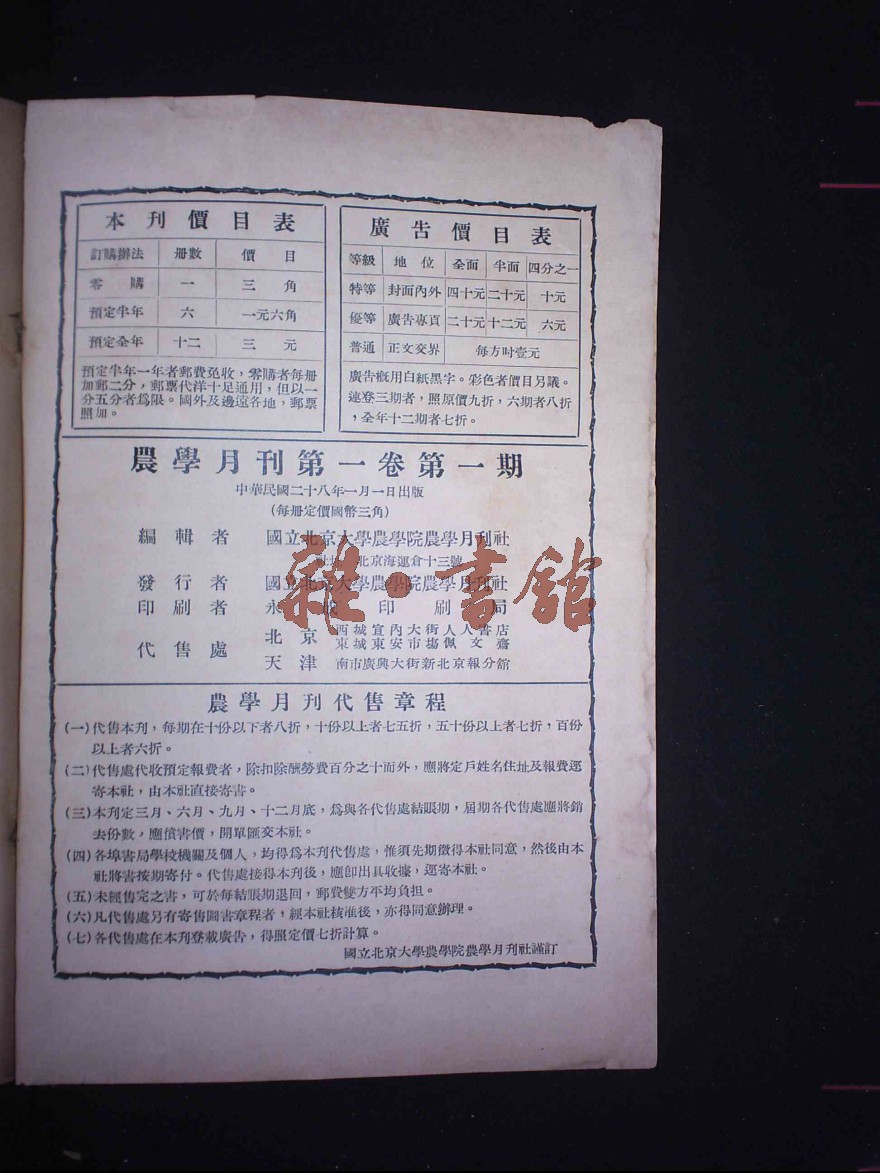 本刊價目表
訂購辦法 册數 價目
零購 一 三角
預定半年 六 一元六角
預定全年 十二 三元
預定半年一年者郵費免收，零購者每册
加郵二分，郵票代洋十足通用，但以一
分五分者爲限。國外及邊遠各地，郵票
照加。
廣告價目表
等級 地位 全面 半面 四分之一
特等 封面內外 四十元 二十元 十元
優等 廣告專頁 二十元 十二元 六元
普通 正文交界 每方吋壹元
廣告概用白紙黑字。彩色者價目另議。
連登三期者，照原價九折，六期者八折
，全年十二期者七折。
農學月刊第一卷第一期
中華民國二十八年一月一日出版
(每册定價國幣三角)
編輯者 國立北京大學農學院農學月刊社
社址 北京海運倉十三號
發行者 國立北京大學農學院農學月刊社
印刷者 永 印刷局
代售處 北京 西城宣內大街人人書店
東城東安市場佩文齋
天津 南市廣興大街新北京報分館
雜·書館
農學月刊代售章程
(一)代售本刊，每期在十份以下者八折，十份以上者七五折，五十份以上者七折，百份
以上者六折。
(二)代售處代收預定報費者，除扣除酬勞費百分之十而外，應將定戶姓名住址及報費逕
寄本社，由本社直接寄書。
(三)本刊定三月、六月、九月、十二月底，爲與各代售處結賬期，屆期各代售處應將銷
去份數，應償書價，開單匯交本社。
(四)各埠書局學校機關及個人，均得爲本刊代售處，惟須先期徵得本社同意，然後由本
社將書按期寄付。代售處接得本刊後，應卽出具收據，逕寄本社。
(五)未經售完之書，可於每結賬期退回，郵費雙方平均負担。
(六)凡代售處另有寄售圖書章程者，經本社核准後，亦得同意辦理。
(七)各代售處在本刊登載廣告，得照定價七折計算。
國立北京大學農學院農學月刊社謹訂